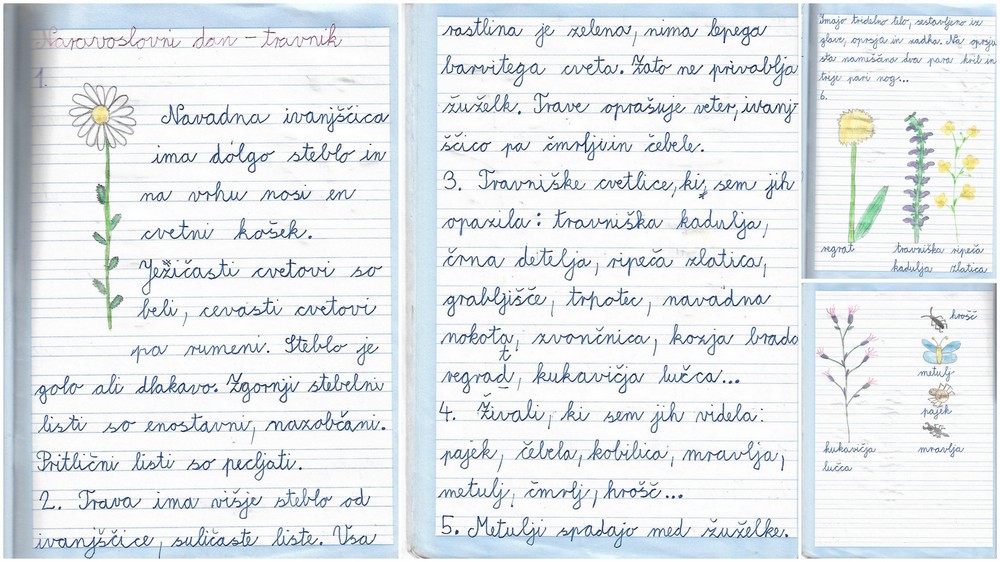 Naravoslovni dan - travnik
1.
Navadna ivanjščica
ima dolgo steblo in
na vrhu nosi en
cvetni košek.
Ježičasti cvetovi so
beli, cevasti cvetovi
pa rumeni. Steblo je
golo ali dlakavo. Zgornji stebelni
listi so enostavni, nazobčani.
Pritlični listi so pecljati.
2. Trava ima višje steblo od
ivanjščice, suličaste liste. Vsa
rastlina je zelena, nima lepega
barvitega cveta. Zato ne privablja
žuželk. Trave oprašuje veter, ivanj-
ščico pa čmrlji in čebele.
3. Travniške cvetlice, ki sem jih
opazila: travniška kadulja,
črna detelja, ripeča zlatica,
grabljišče, trpotec, navadna
nokota, zvončnica, kozja brada
t
regrad, kukavičja lučca...
4. Živali, ki sem jih videla:
pajek, čebela, kobilica, mravlja,
metulj, čmrlj, hrošč...
5. Metulji spadajo med žuželke.
Imajo tridelno telo, sestavljeno iz
glave, oprsja in zadka. Na oprsju
sta nameščena dva para kril in
trije pari nog...
6.
regrat
travniška kadulja
ripeča zlatica
kukavičja
lučca
hrošč
metulj
pajek
mravlja